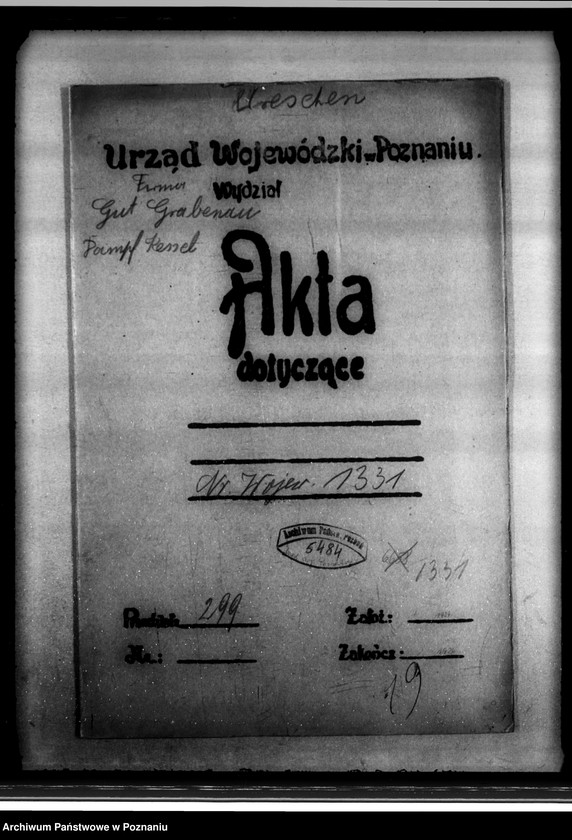 Wreschen
Urząd Wojewódzki w Poznaniu.
Firma
Wydział
Gut Grabenau
Dampf Kessel
Akta
dotyczące
Nr. Wojew. 1331
Archiwum Państw. Poznań
5484
1331
299
Założ.:
Nr.:
Zakończ.:
19
Archiwum Państwowe w Poznaniu